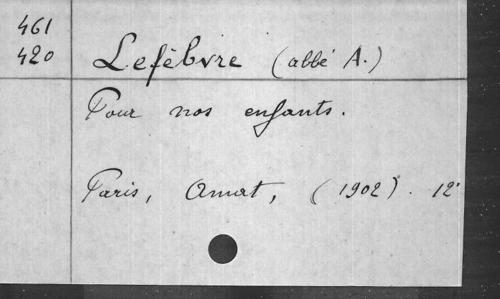 461
420
Lefèbvre (abbé A.)
Pour nos enfants.
Paris, Amat, (1902). 12°